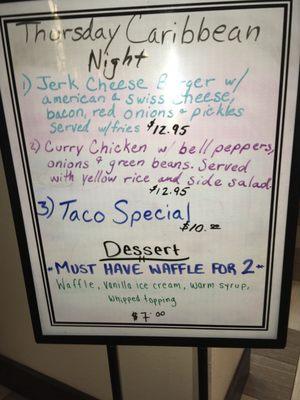 Thursday Caribbean
Night
1) Jerk Cheese Burger w/
american & swiss cheese,
bacon, red onions & pickles
Served w/fries $12.95
2) Curry Chicken w/ bell peppers,
onions & green beans. Served
with yellow rice and side salad.
$12.95
3) Taco Special
$10.00
Dessert
*MUST HAVE WAFFLE FOR 2*
Waffle, Vanilla ice cream, warm syrup,
whipped topping
$7.00